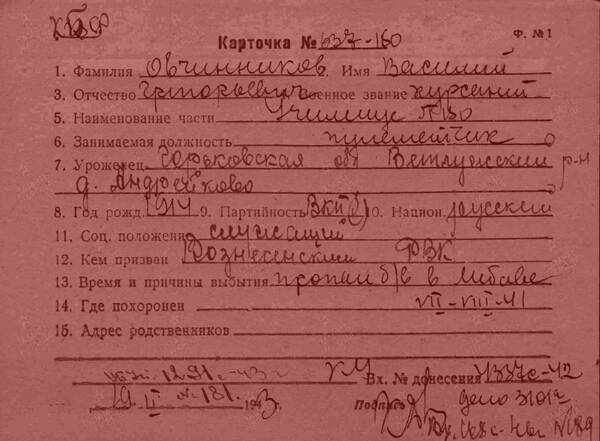 КБФ
Карточка № 337-160
Ф. № 1
1. Фамилия Овчинников. Имя Василий
3. Отчество Григорьевич военное звание курсант
5. Наименование части Училище ПВО
6. Занимаемая должность пулеметчик
7. Уроженец Горьковская обл Ветлужский р-н
д. Андрейково
8. Год рожд. 1914 9. Партийность ВКП(б) 10. Национ. русский
11. Соц. положение служащий
12. Кем призван Вознесенским РВК
13. Время и причины выбытия пропал б/в в Либаве
14. Где похоронен VII-VIII-41
15. Адрес родственников
1291с-43г
Вх. № донесения 4337с-42
19 II № 181. 1943г. Подпись дело 3101с
Вх. 068с-46г № 189